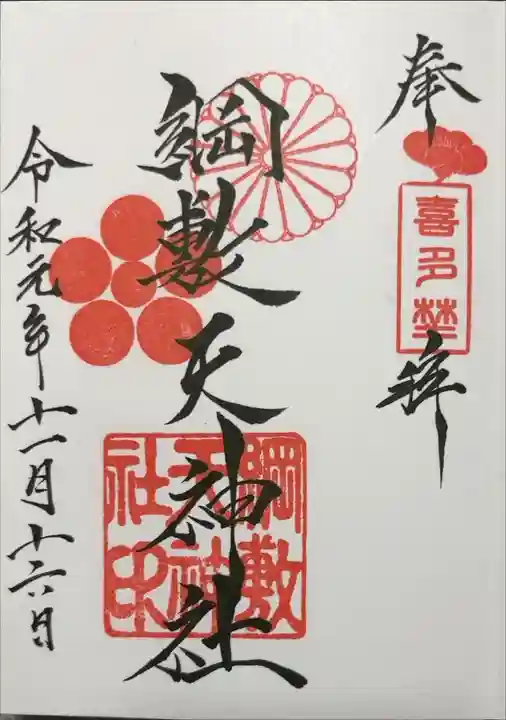 奉拝
喜多埜
綱敷天神社
綱敷天神社印
令和元年十一月十六日